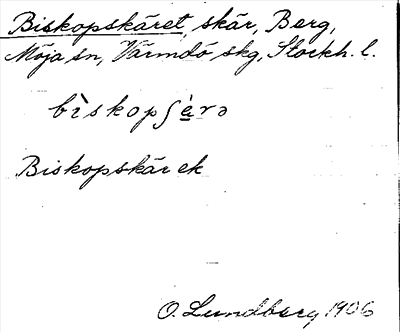 Biskopskäret, skär, Berg,
Möja sn, Värmdö skg, Stockh. l.
bìskopʃæ̀rə
Biskopskär ek
O. Lundberg 1906